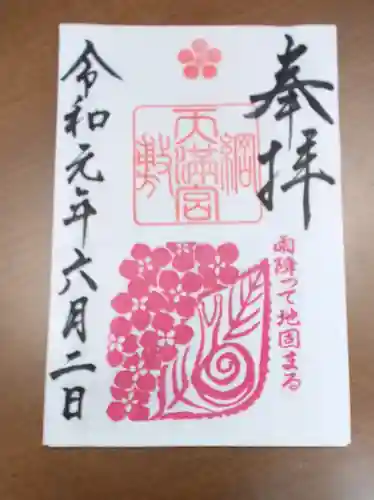 奉拝
綱
天満宮
敷
雨降って地固まる
令和元年六月二日